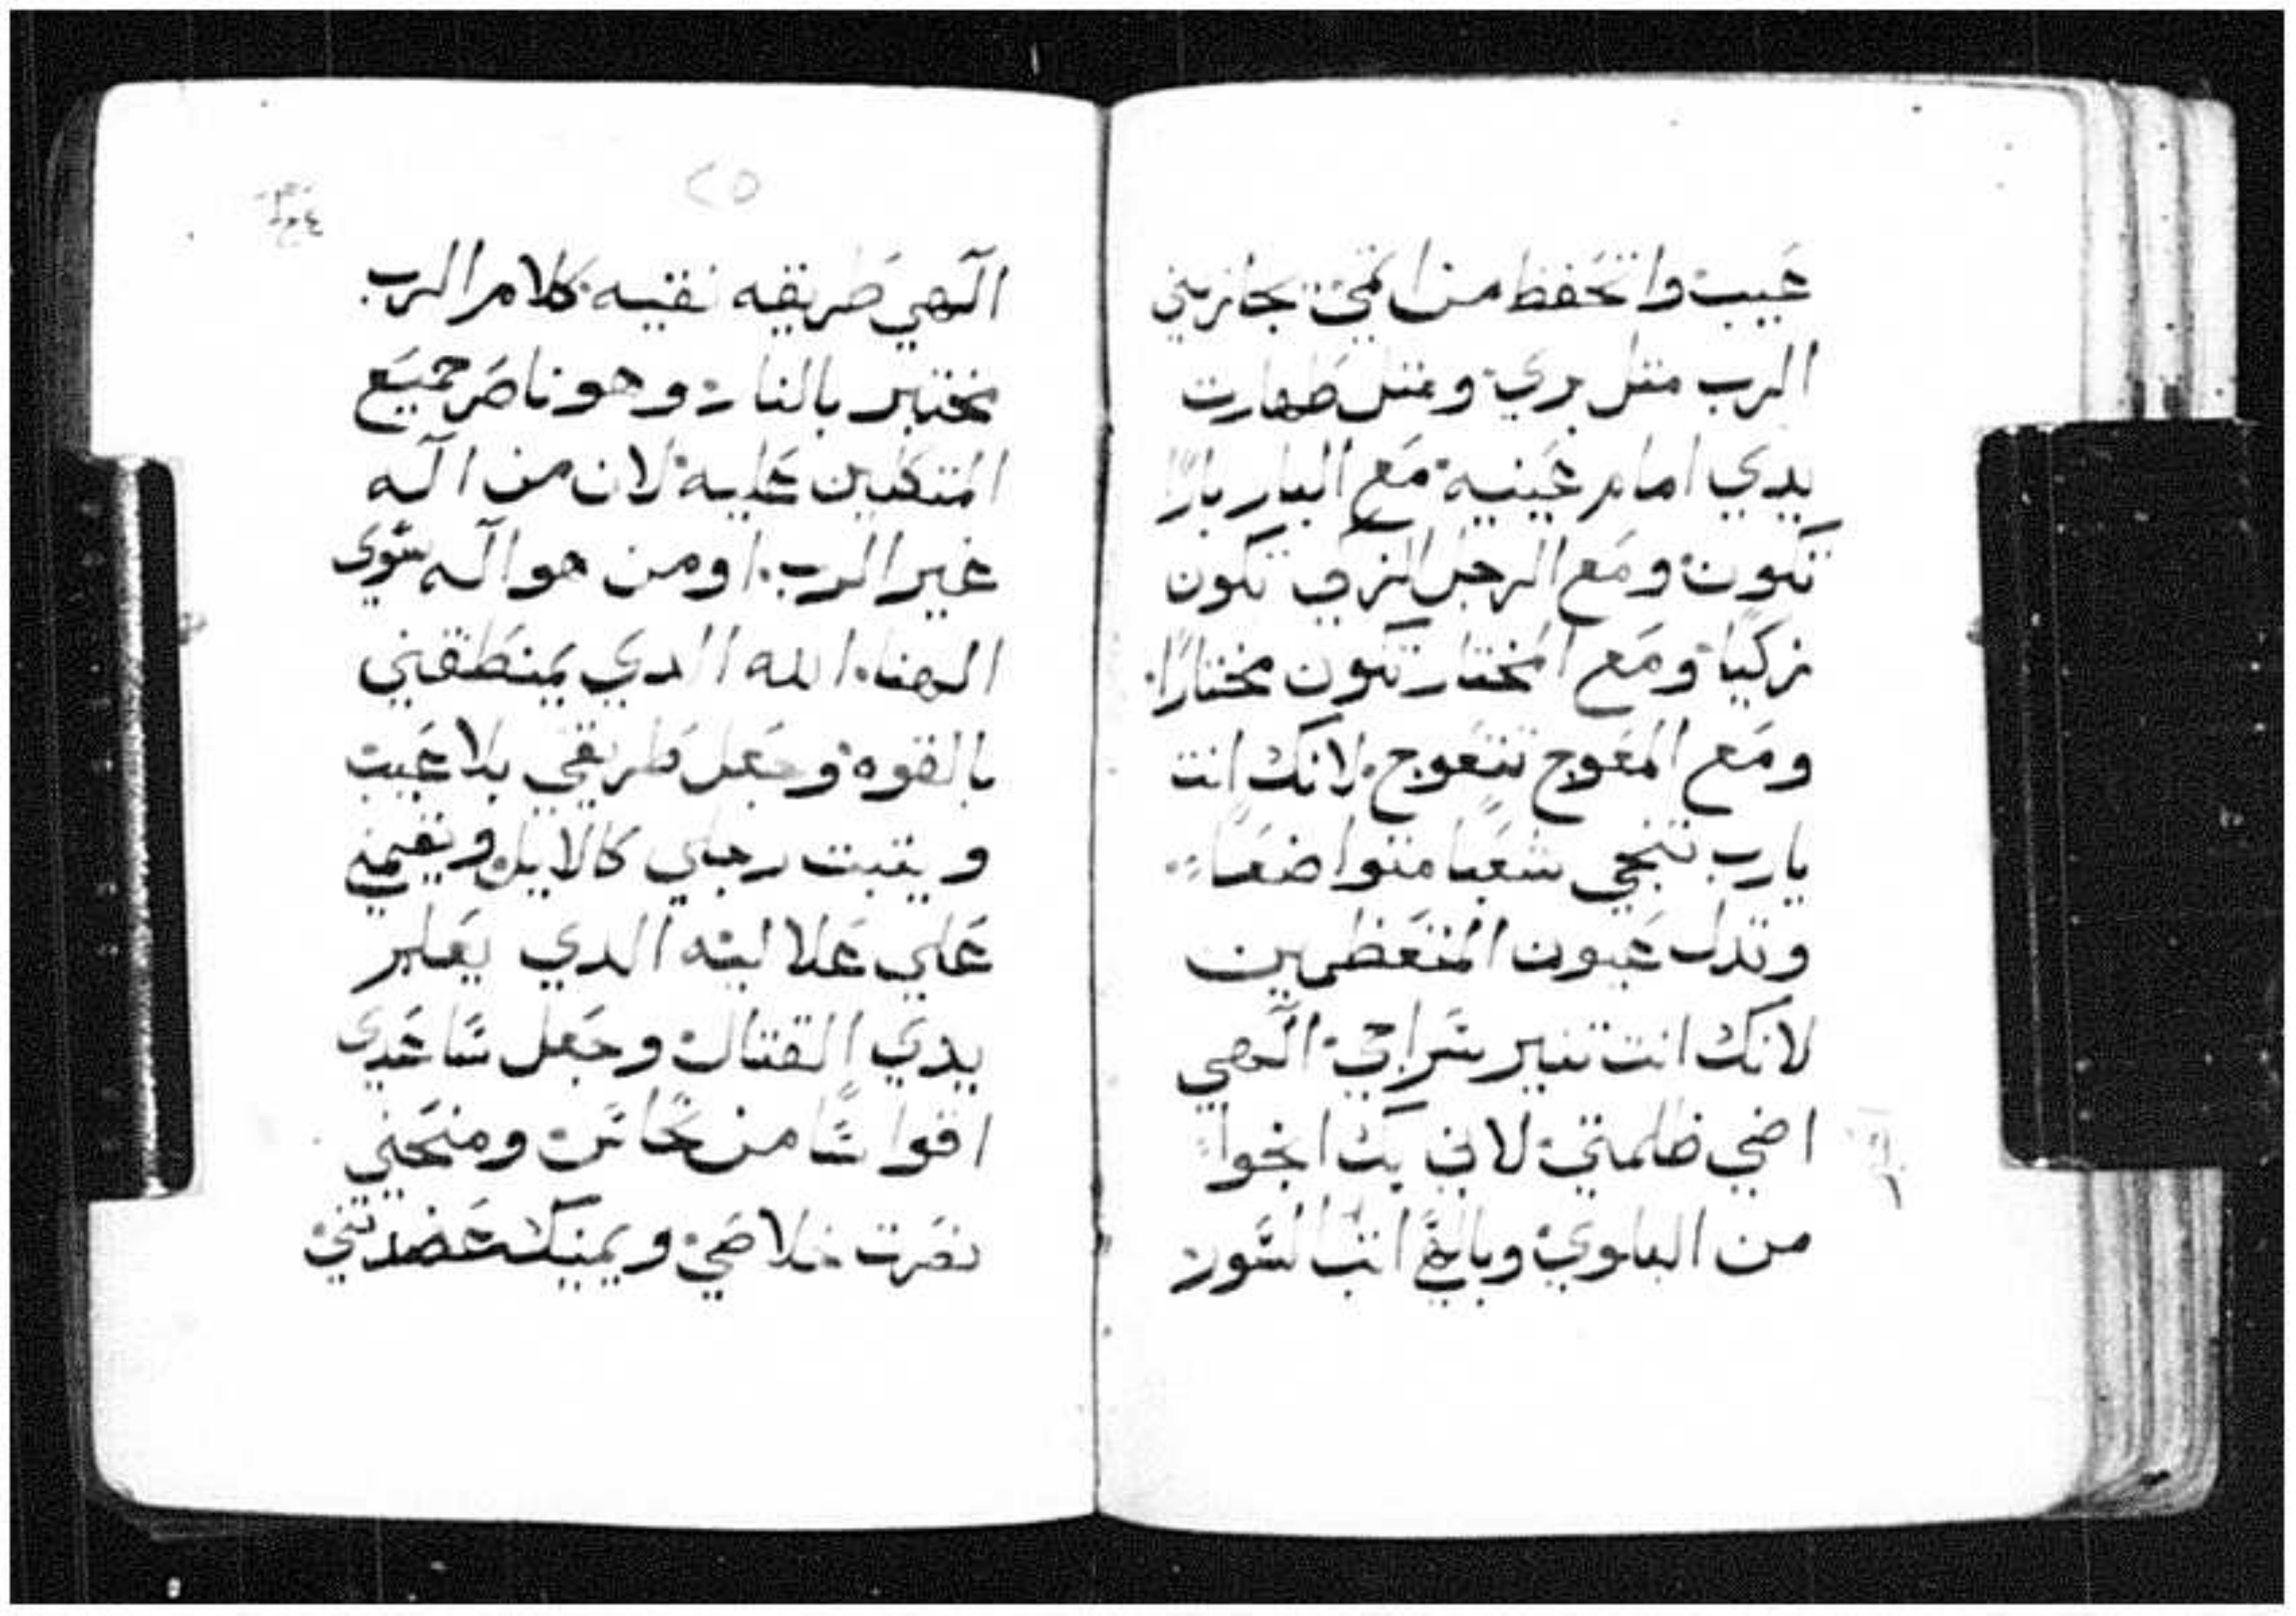 عيب واتحفظ من اتمي يجازيني
الرب مثل بري ومثل طهارت
يدي امام عينيه مع البار بارًا
تكون ومع الرجل الزكي تكون
زكيا ومع المختار تكون مختارًا
ومع المعوج تتعوج لانك انت
يارب تنجي شعبا متواضعًا
وتدل عيون المتعظمين
لانك انت تنير سراجي الهي
اضي ظلمتي لاني بك انجوا
من البلوي وبالهي اتب السور
٢٥
الهي طريقه نقيه كلام الرب
مختبر بالنار وهو ناصر جميع
المتكلين عليه لان من اله
غير الرب او من هو اله سوي
الهنا الله الدي يمنطقني
بالقوه وجعل طريقي بلا عيب
ويتبت رجلي كالايل ويقيمني
علي علاليته الدي يعلم
يدي القتال وجعل ساعدي
اقواسًا من نحاس ومنحني
نصرت خلاصي ويمينك عضدتني